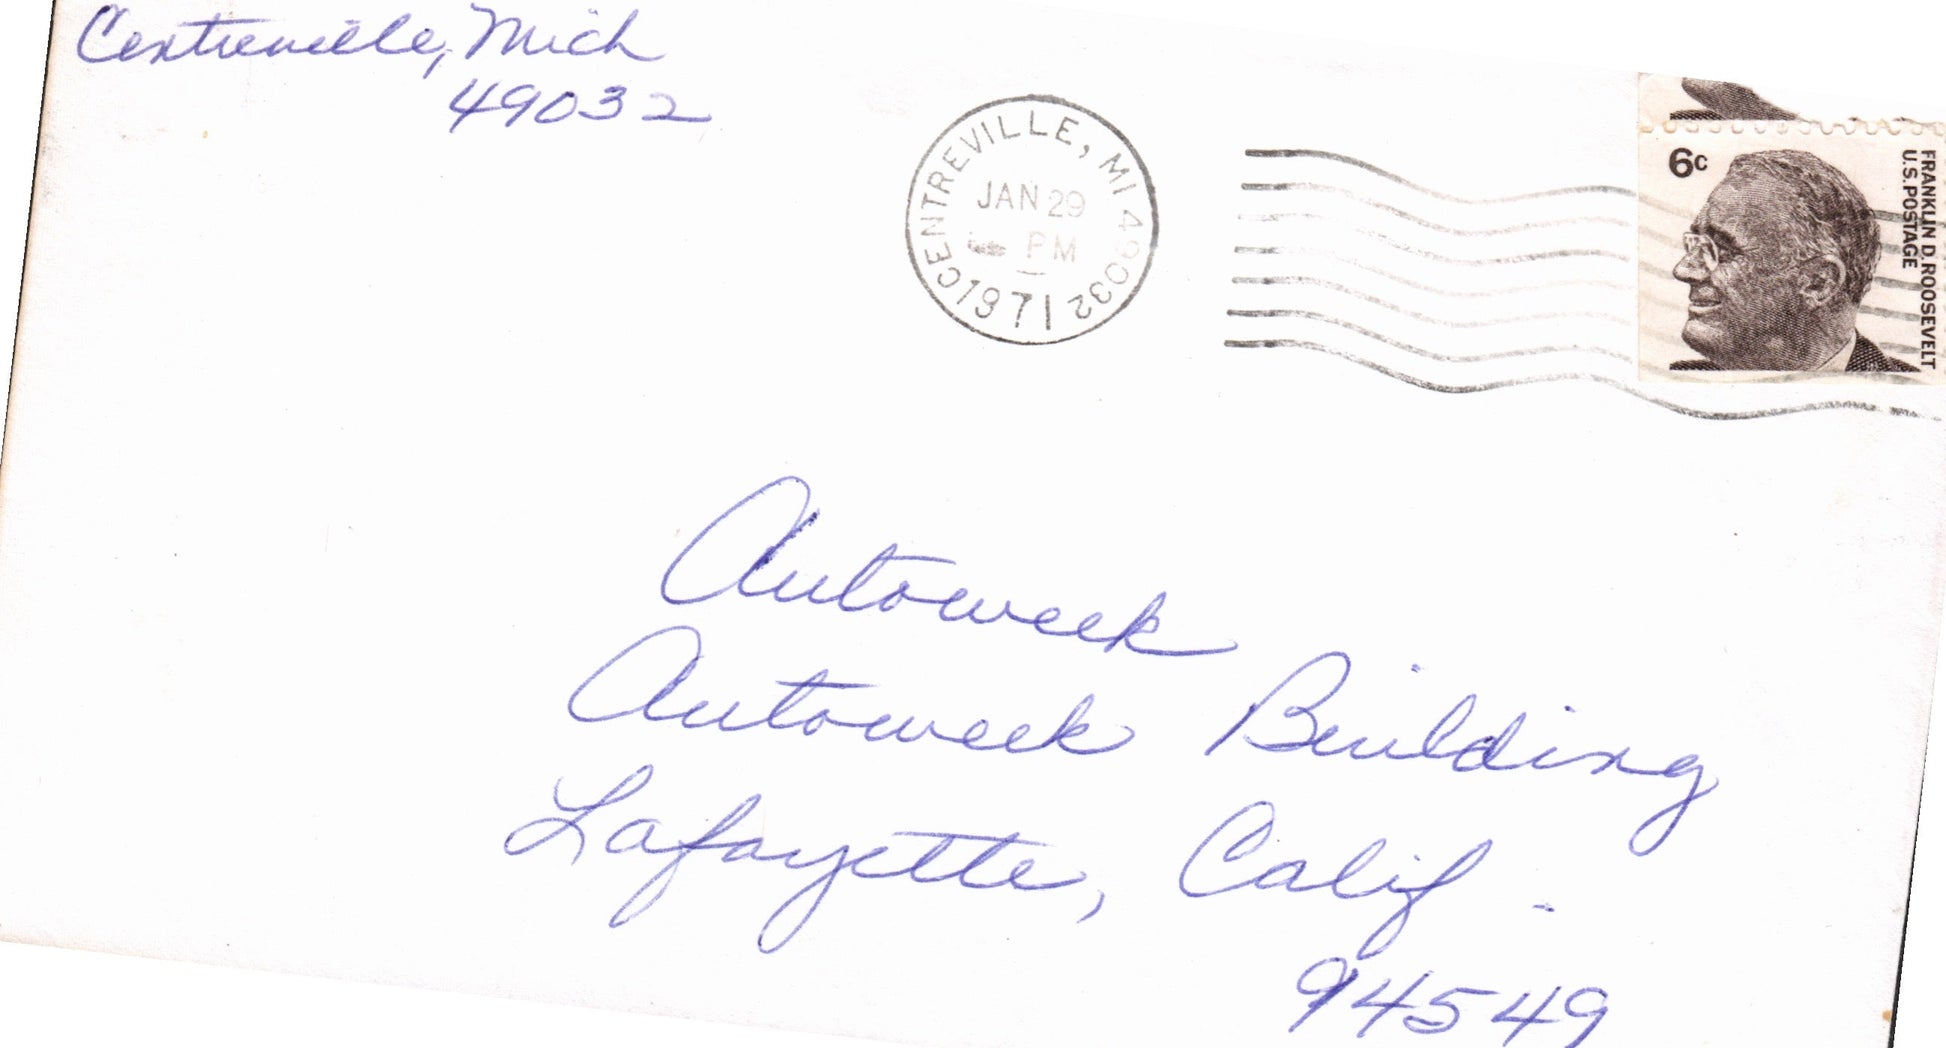 Centreville, Mich
49032
CENTREVILLE, MI 49032
JAN 29
PM
1971
6c
FRANKLIN D. ROOSEVELT
U.S. POSTAGE
Autoweek
Autoweek Building
Lafayette, Calif.
94549